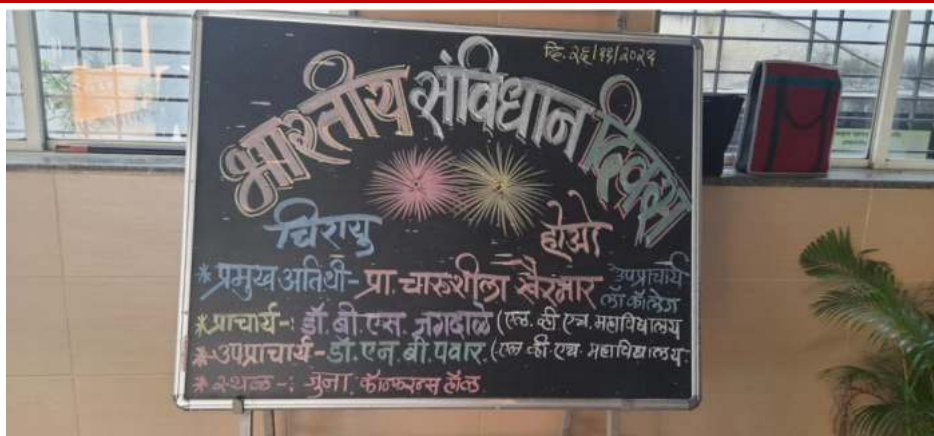 दि. २६/११/२०२१
भारतीय संविधान दिवस
चिरायु होओ
* प्रमुख अतिथी - प्रा. चारुशीला खैरमार उपप्राचार्य लॉ कॉलेज
* प्राचार्य -: डॉ. बी. एस. जगदाळे (एल. व्ही एच. महाविद्यालय
* उपप्राचार्य - डॉ. एन. बी. पवार. (एल व्ही एच. महाविद्यालय.
* स्थळ -: जुना कॉन्फरन्स हॉल